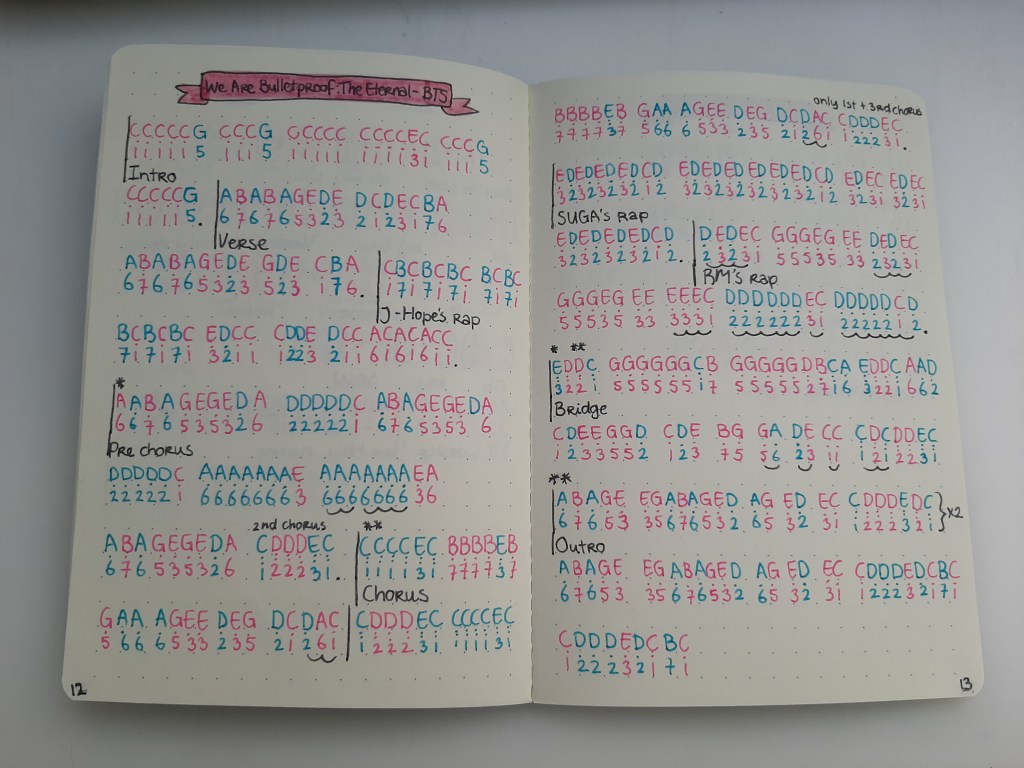 We Are Bulletproof: The Eternal - BTS
CCCCCG CCCG CCCCC CCCCEC CCCG
11111 5 111 5 11111 111131 111 5
Intro
CCCCCG ABABAGEDE DCDECBA
11111 5. 676765323 2123176
Verse
ABABAGEDE GDE CBA CBCBCBC BCBC
676765323 523 176. 1717171 7171
J-Hope's rap
BCBCBC EDCC CDDE DCC ACACACC
717171 3211 1223 211 6161611.
*
AABAGEGEDA DDDDDC ABAGEGEDA
6676535326 222221 676535 3 6
Pre chorus
DDDDDC AAAAAAAE AAAAAAAEA
222221 66666663 6666666 36
2nd chorus **
ABAGEGEDA CDDDEC CCCCEC BBBBEB
676535326 122231.. 111131 777737
Chorus
GAA AGEE DEG DCDAC CDDDEC CCCCEC
566 6533 235 21261 122231 111131
12
only 1st + 3rd chorus
BBBBEB GAA AGEE DEG DCDAC CDDDEC
777737 566 6533 235 21261 122231.
EDEDEDEDCD EDEDEDEDEDEDCD EDEC EDEC
3232323212 32323232323212 3231 3231
SUGA's rap
EDEDEDEDCD DEDEC GGGEG EE DEDEC
3232323212.. 23231 55535 33 23231
RM's Rap
GGGEG EE EEEC DDDDDDEC DDDDDCD
55535 33 3331 22222231 2222212.
* **
EDDC GGGGGGCB GGGGGDBCA EDDC AAD
3221 55555517 555552716 3221 662
Bridge
CDEEGGD CDE BG GA DE CC CDCDDEC
1233552 123 75 56 23 11 1212231
**
ABAGE EGABAGED AG ED EC CDDDEDC } x2
67653 35676532 65 32 31 1222321
Outro
ABAGE EGABAGED AG ED EC CDDDEDCBC
67653 35676532 65 32 31 122232171
CDDDEDCBC
122232171
13